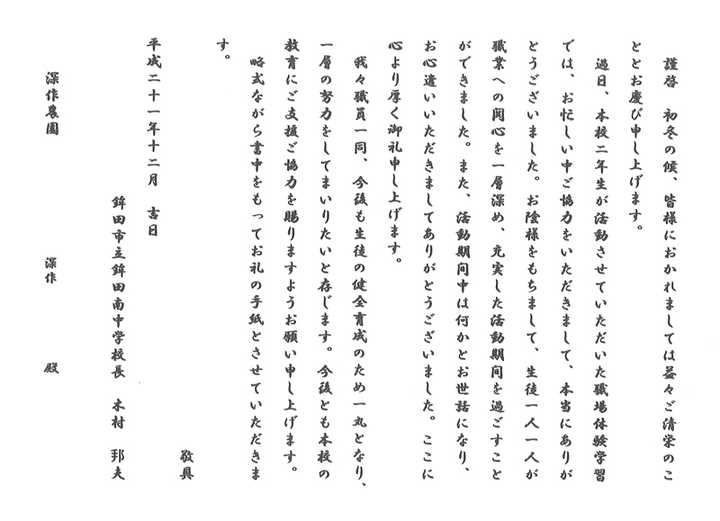 謹啓　初冬の候、皆様におかれましては益々ご清栄のこ
ととお慶び申し上げます。
過日、本校二年生が活動させていただいた職場体験学習
では、お忙しい中ご協力をいただきまして、本当にありが
とうございました。お陰様をもちまして、生徒一人一人が
職業への関心を一層深め、充実した活動期間を過ごすこと
ができました。また、活動期間中は何かとお世話になり、
お心遣いいただきましてありがとうございました。ここに
心より厚く御礼申し上げます。
我々職員一同、今後も生徒の健全育成のため一丸となり、
一層の努力をしてまいりたいと存じます。今後とも本校の
教育にご支援ご協力を賜りますようお願い申し上げます。
略式ながら書中をもってお礼の手紙とさせていただきま
す。
敬具
平成二十一年十二月　吉日
鉾田市立鉾田南中学校長　木村　邦夫
深作農園　深作　殿